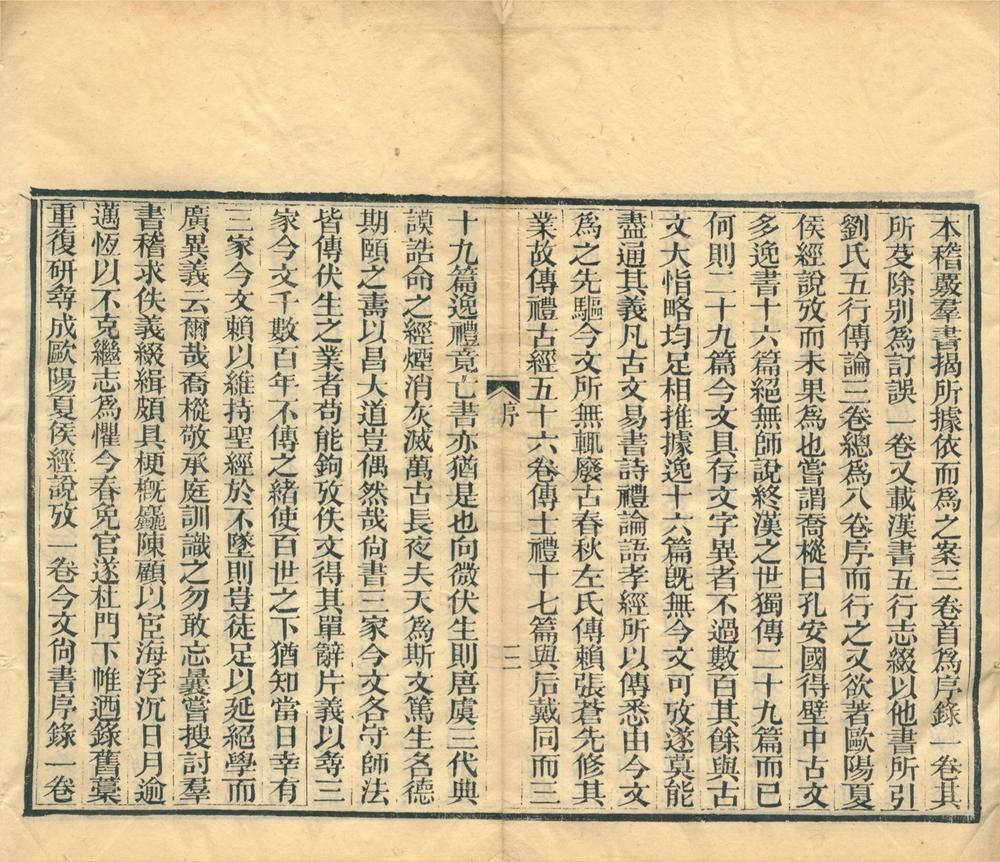 本稽覈羣書揭所據依而爲之案三卷首爲序錄一卷其
所芟除別爲訂誤一卷又載漢書五行志綴以他書所引
劉氏五行傳論三卷總爲八卷序而行之又欲著歐陽夏
侯經說攷而未果爲也嘗謂喬樅曰孔安國得壁中古文
多逸書十六篇絕無師說終漢之世獨傳二十九篇而已
何則二十九篇今文具存文字異者不過數百其餘與古
文大恉略均足相推據逸十六篇旣無今文可攷遂莫能
盡通其義凡古文易書詩禮論語孝經所以傳悉由今文
爲之先驅今文所無輒廢古春秋左氏傳賴張蒼先修其
業故傳禮古經五十六卷傳士禮十七篇與后戴同而三
序
二
十九篇逸禮竟亡書亦猶是也向微伏生則唐虞三代典
謨誥命之經煙消灰滅萬古長夜夫天爲斯文篤生名德
期頤之壽以昌大道豈偶然哉尙書三家今文各守師法
皆傳伏生之業者苟能鉤攷佚文得其單辭片義以尋三
家今文千數百年不傳之緒使百世之下猶知當日幸有
三家今文賴以維持聖經於不墜則豈徒足以延絕學而
廣異義云爾哉喬樅敬承庭訓識之勿敢忘曩嘗搜討羣
書稽求佚義綴緝頗具梗槪麤陳顧以宦海浮沉日月逾
邁恆以不克繼志爲懼今春免官遂杜門下帷迺錄舊藁
重復研尋成歐陽夏侯經說攷一卷今文尙書序錄一卷